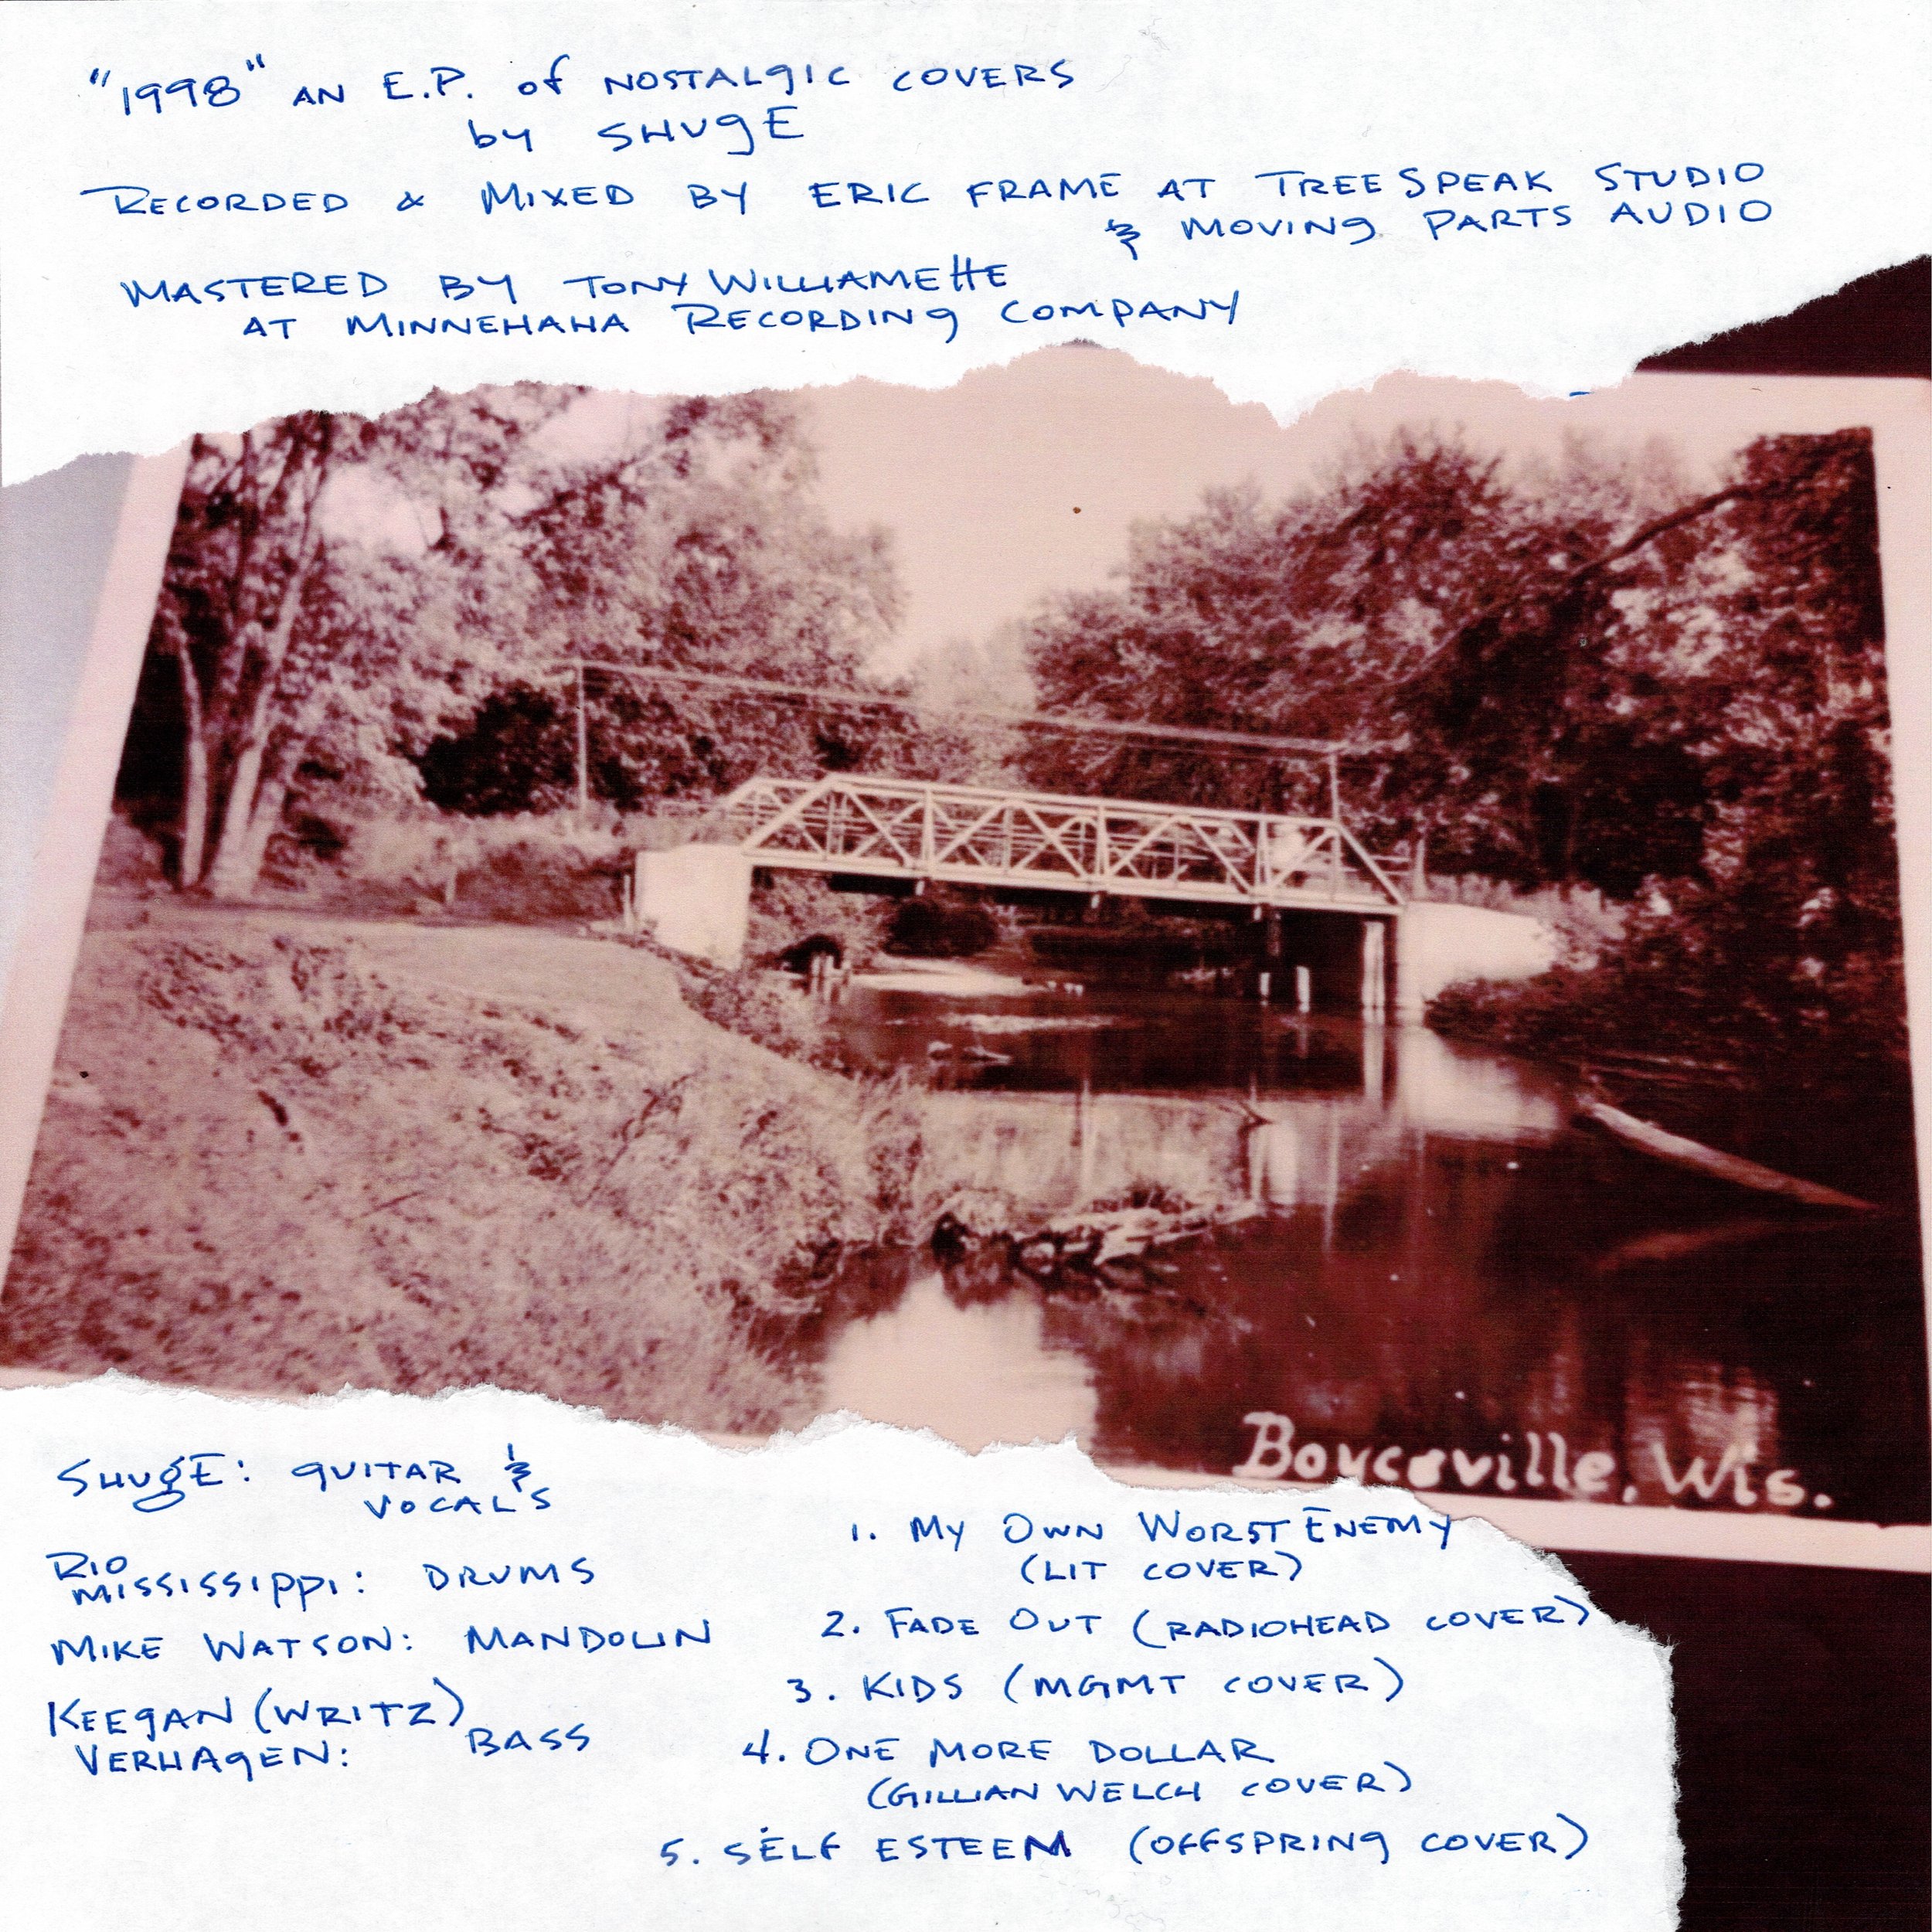 "1998" AN E.P. of NOSTALGIC COVERS
by SHUGE
RECORDED & MIXED BY ERIC FRAME AT TREESPEAK STUDIO
& MOVING PARTS AUDIO
MASTERED BY TONY WILLIAMETTE
AT MINNEHAHA RECORDING COMPANY
Boyceville, Wis.
SHUGE: GUITAR &
VOCALS
RIO
MISSISSIPPI: DRUMS
MIKE WATSON: MANDOLIN
KEEGAN (WRITZ)
VERHAGEN: BASS
1. MY OWN WORST ENEMY
(LIT COVER)
2. FADE OUT (RADIOHEAD COVER)
3. KIDS (MGMT COVER)
4. ONE MORE DOLLAR
(GILLIAN WELCH COVER)
5. SELF ESTEEM (OFFSPRING COVER)